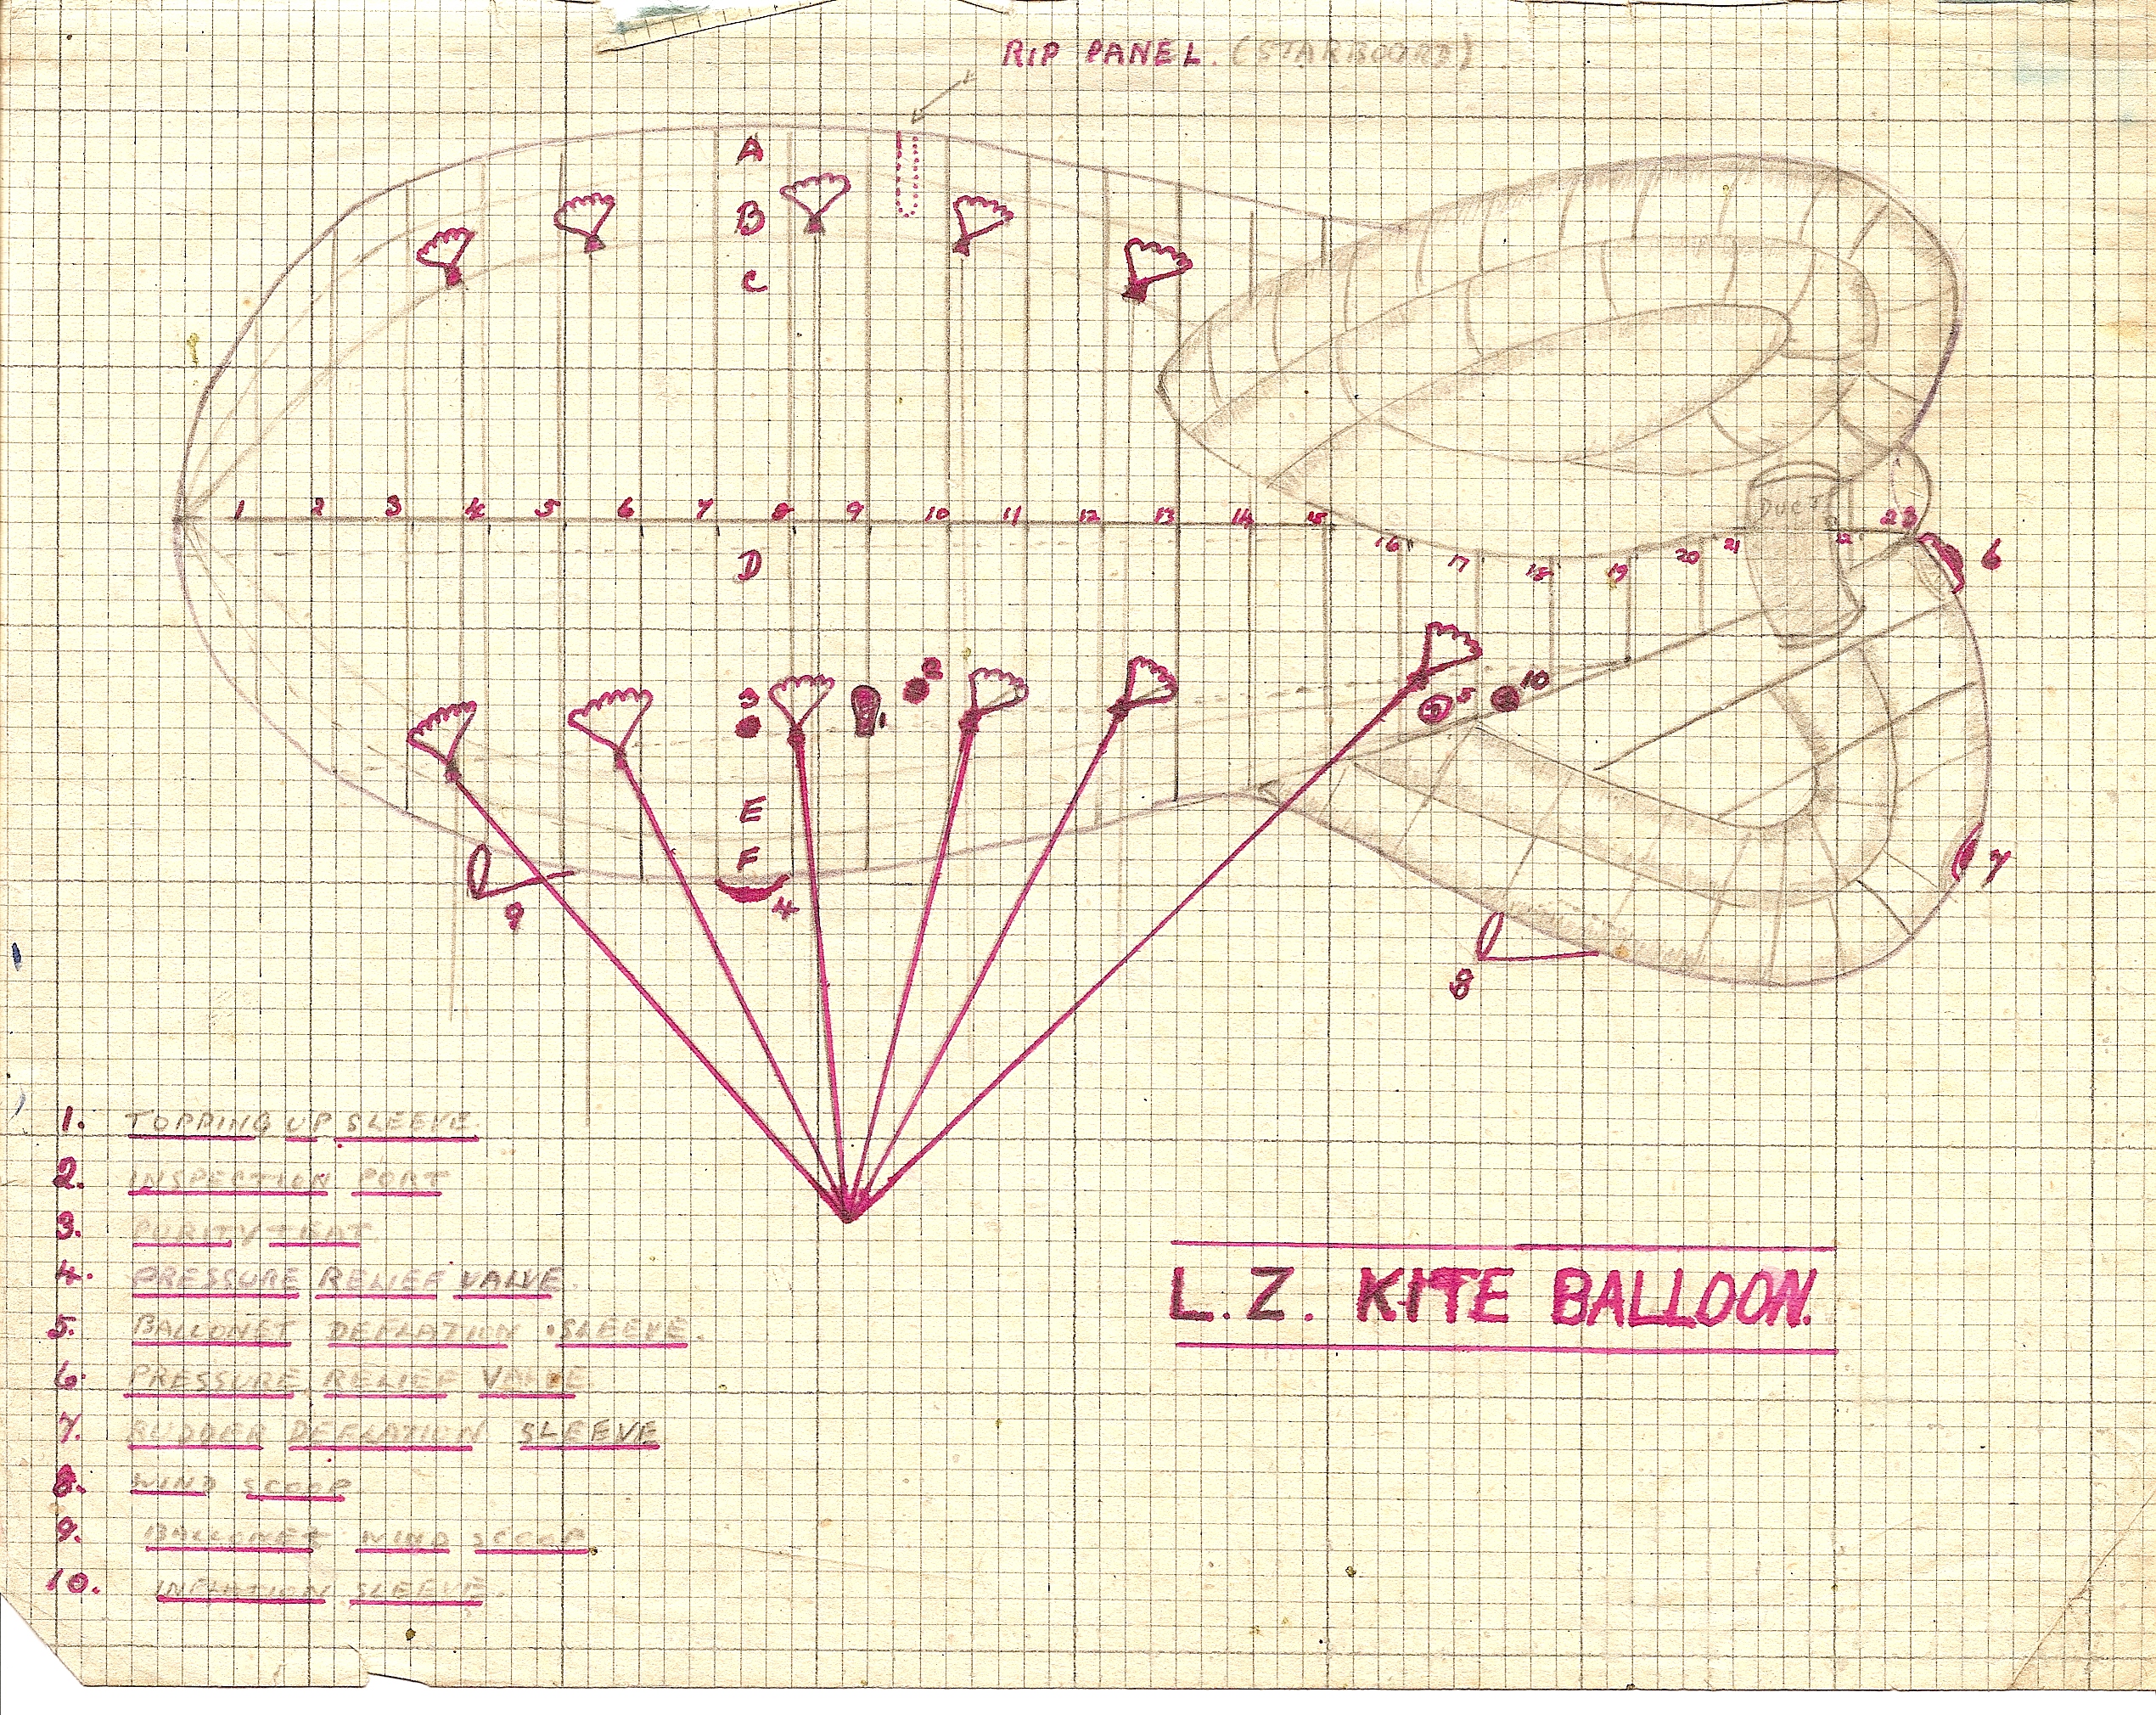 RIP PANEL. (STARBOARD)
A
B
C
1 2 3 4 5 6 7 8 9 10 11 12 13 14 15 16 17 18 19 20 21 22 23
DUCT
6
D
3 1 2 5 10
E
F
4
9
7
8
1. TOPPING UP SLEEVE.
2. INSPECTION PORT
3. PURITY
4. PRESSURE RELIEF VALVE.
5. BALLONET DEFLATION SLEEVE.
6. PRESSURE RELIEF VALVE
7. RUDDER DEFLATION SLEEVE
8. WIND SCOOP
9. BALLONET WIND SCOOP
10. INFLATION SLEEVE.
L.Z. KITE BALLOON.